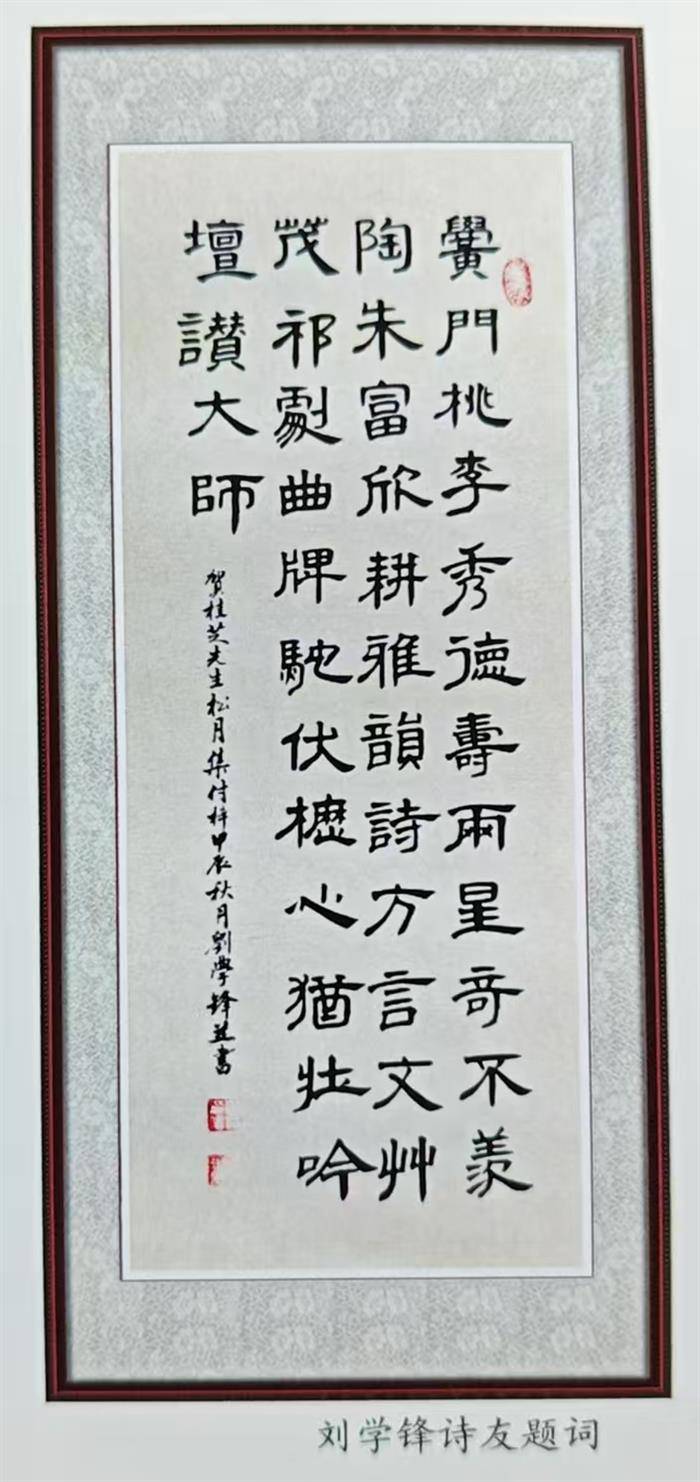 黌門桃李秀德壽兩星奇不羨
陶朱富欣耕雅韻詩方言文艸
茂祁劇曲牌馳伏櫪心猶壯吟
壇讚大師
賀桂芝先生松月集付梓甲辰秋月劉學鋒並書
刘学锋诗友题词